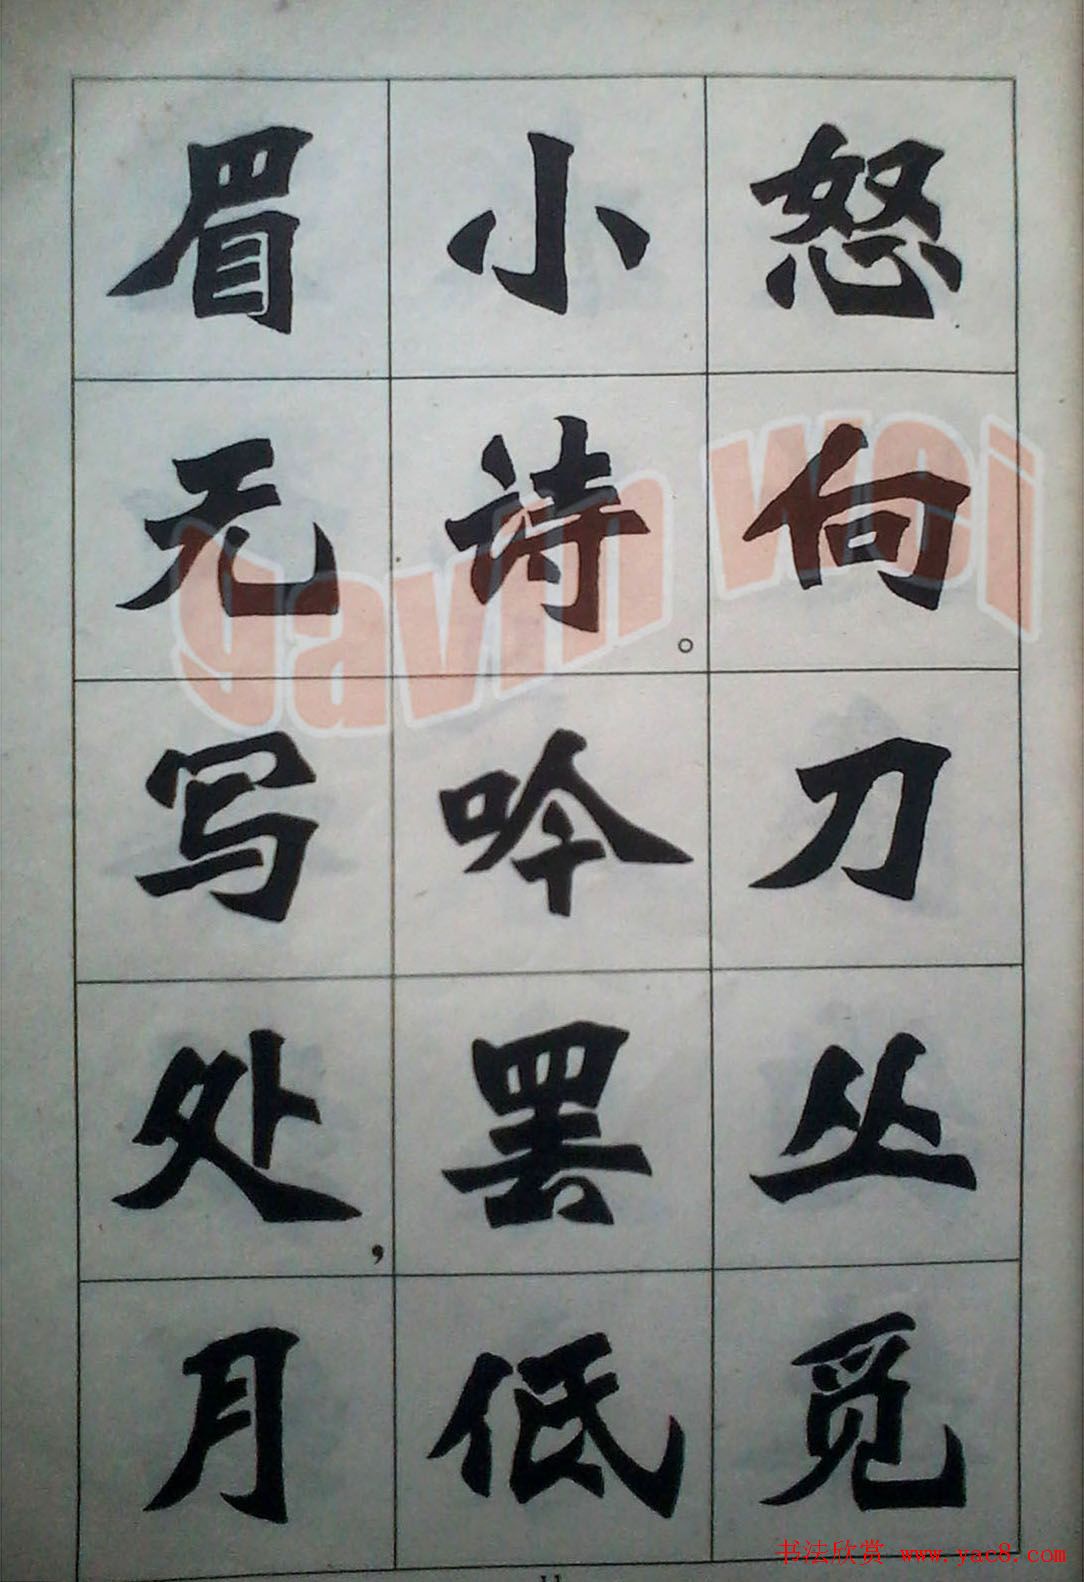 怒向刀丛觅
小诗。吟罢低
眉无写处,月
gavin wei
11
书法欣赏 www.yac8.com